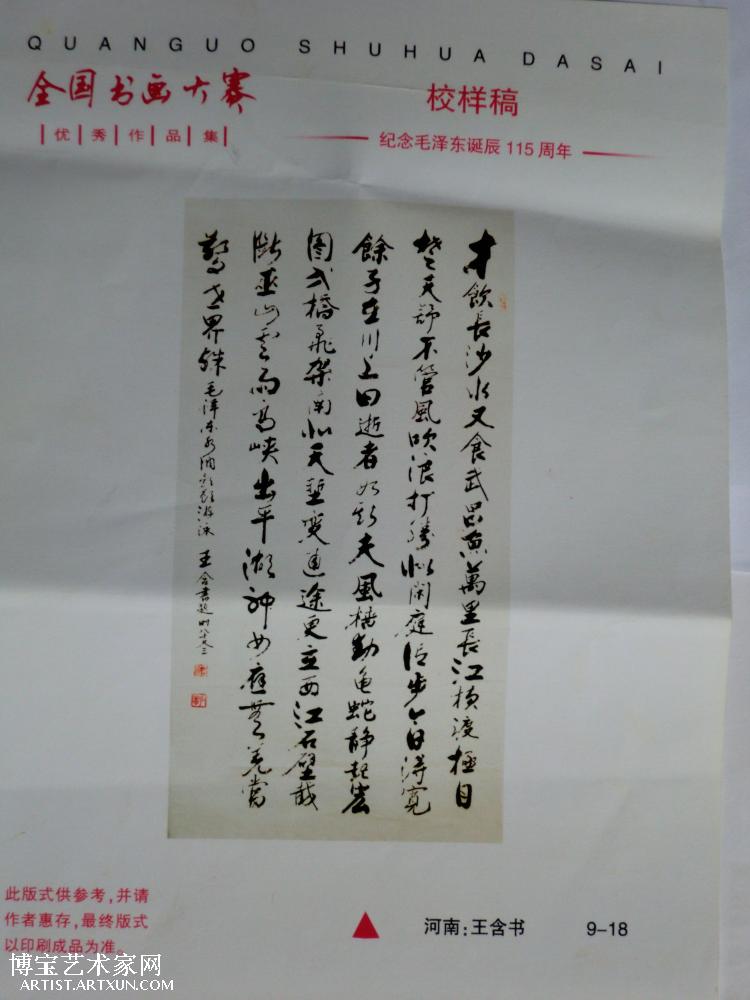 QUANGUO SHUHUA DASAI
全国书画大赛
优秀作品集
校样稿
纪念毛泽东诞辰 115 周年
才飲長沙水又食武昌魚萬里長江橫渡極目
楚天舒不管風吹浪打勝似閑庭信步今日得寬
餘子在川上曰逝者如斯夫風檣動龜蛇靜起宏
圖弌橋飛架南北天塹變通途更立西江石壁截
斷巫山雲雨高峽出平湖神女應無恙當
驚世界殊 毛澤東水調歌頭游泳 王含書題時
此版式供参考,并请
作者惠存,最终版式
以印刷成品为准。
河南:王含书 9-18
博宝艺术家网
ARTIST.ARTXUN.COM